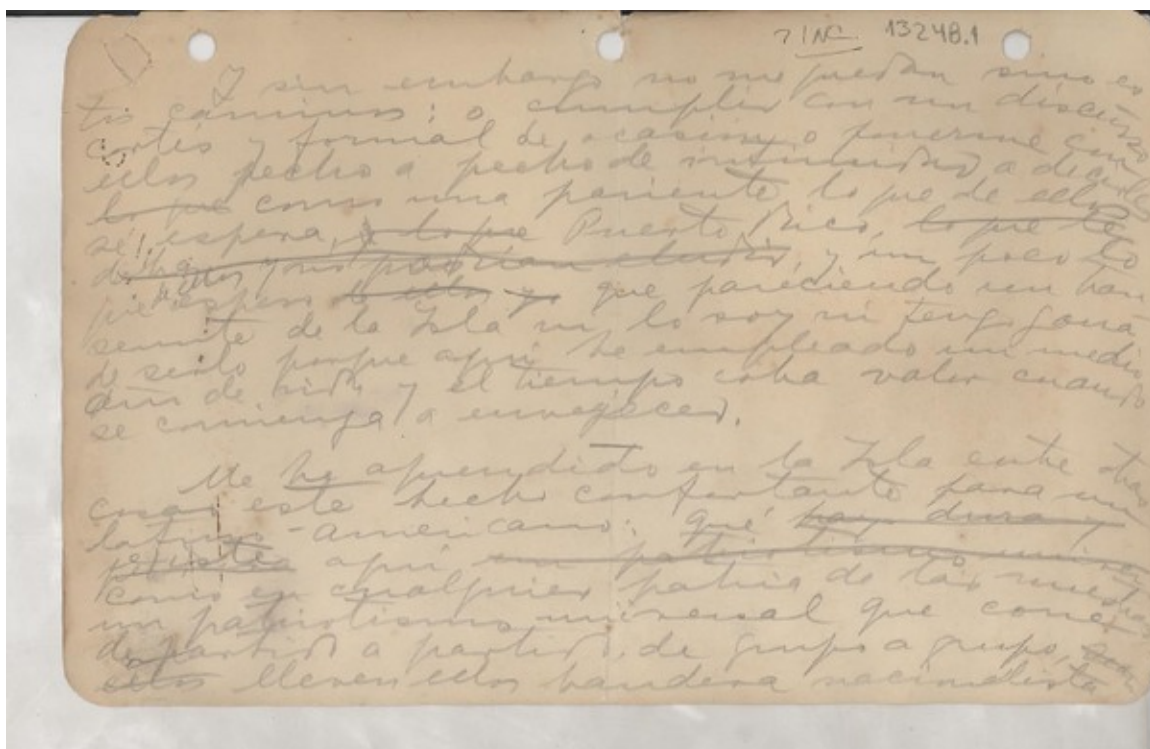 13248.1
Y sin embargo no me quedan sino es
tos caminos: o cumplir con un discurso
cortés y formal de ocasión, o ponerme con
ellos pecho a pecho de intimidad a decirles
lo que como una pariente lo que de ellos
sé! espera, y lo que Puerto Rico, lo que te
y no podrían eludir, y un poco lo
que espero de ellos yo que pareciendo un tran
seunte de la Isla ni lo soy ni tengo gana
de serlo porque aquí he empleado un medio
año de vida y el tiempo coba valor cuando
se comienza a envejecer.
Me he aprendido en la Isla entre otras
cosas este hecho confortante para un
latino-americano: qué hay dura y
persiste aquí un patriotismo univer
como en cualquier patria de las nuestras
un patriotismo universal que corre
de partido a partido, de grupo a grupo,
ellos lleven ellos bandera nacionalista